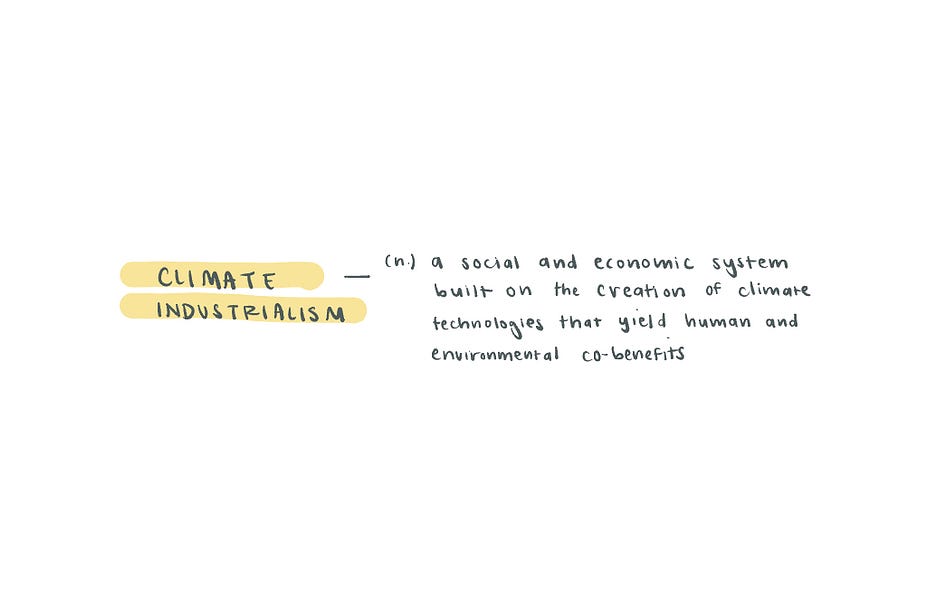 CLIMATE
INDUSTRIALISM
— (n.) a social and economic system
built on the creation of climate
technologies that yield human and
environmental co-benefits